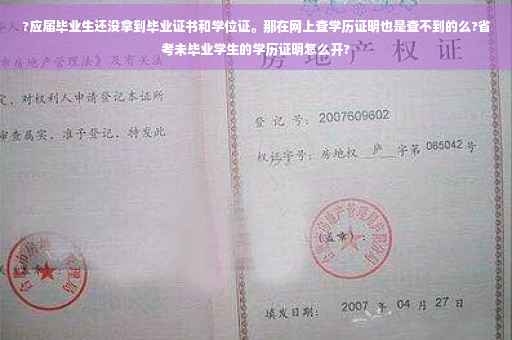 ?应届毕业生还没拿到毕业证书和学位证。那在网上查学历证明也是查不到的么?省
考未毕业学生的学历证明怎么开?
房地产权证
市房地产管理法》及有关法
定,对权利人申请登记本证所
审查属实,准予登记,特发此
登记号: 2007609602
权证字号: 房地权 庐 字第 085042 号
(盖章):
填发日期: 2007 年 04 月 27 日